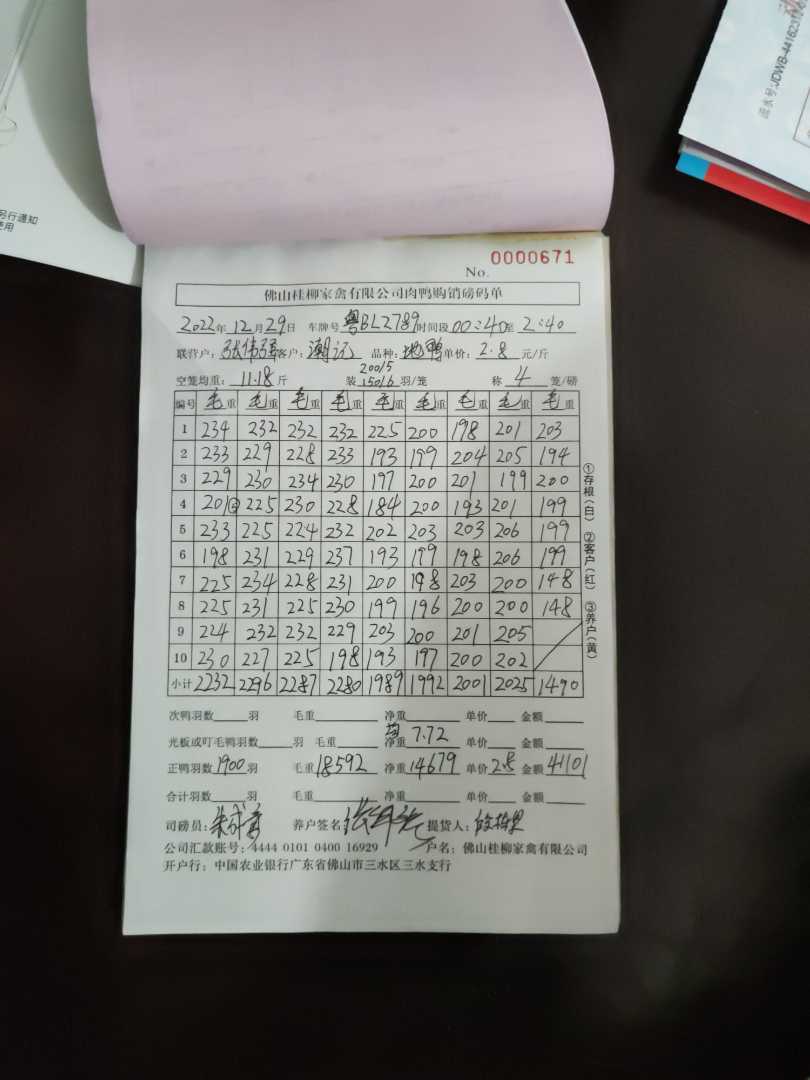 流水号:JDWB-4416231
另行通知
使用
No. 0000671
佛山桂柳家禽有限公司肉鸭购销磅码单
2022年12月29日 车牌号粤BL2789时间段00:40至2:40
联营户:张伟强客户:潮记 品种:地鸭单价:2.8元/斤
200/5
空笼均重:11.18斤 装150/6羽/笼 称4笼/磅
编号 毛重 毛重 毛重 毛重 毛重 毛重 毛重 毛重 毛重
1 234 232 232 232 225 200 198 201 203
2 233 229 228 233 193 199 204 205 194
3 229 230 234 230 197 200 201 199 200
4 201③ 225 230 228 184 200 193 201 199
5 233 225 224 232 202 203 203 206 199
6 198 231 229 237 193 199 198 206 199
7 225 234 228 231 200 198 203 200 148
8 225 231 225 230 199 196 200 200 148
9 224 232 232 229 203 200 201 205
10 230 227 225 198 193 197 200 202
小计 2232 2296 2287 2280 1989 1992 2001 2025 1490
①存根(白) ②客户(红) ③养户(黄)
次鸭羽数 羽 毛重 净重 单价 金额
均7.72
光板或叮毛鸭羽数 羽 毛重 净重 单价 金额
正鸭羽数1900羽 毛重18592 净重14679 单价2.8 金额41101
合计羽数 羽 毛重 净重 单价 金额
司磅员: 养户签名 提货人:
公司汇款账号:4444 0101 0400 16929 户名:佛山桂柳家禽有限公司
开户行:中国农业银行广东省佛山市三水区三水支行